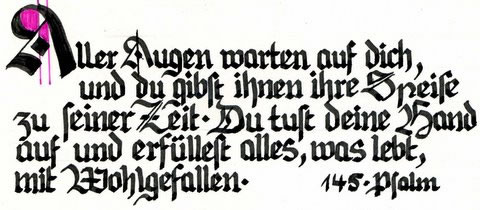 Aller Augen warten auf dich,
und du gibst ihnen ihre Speise
zu seiner Zeit. Du tust deine Hand
auf und erfüllest alles, was lebt,
mit Wohlgefallen. 145. Psalm